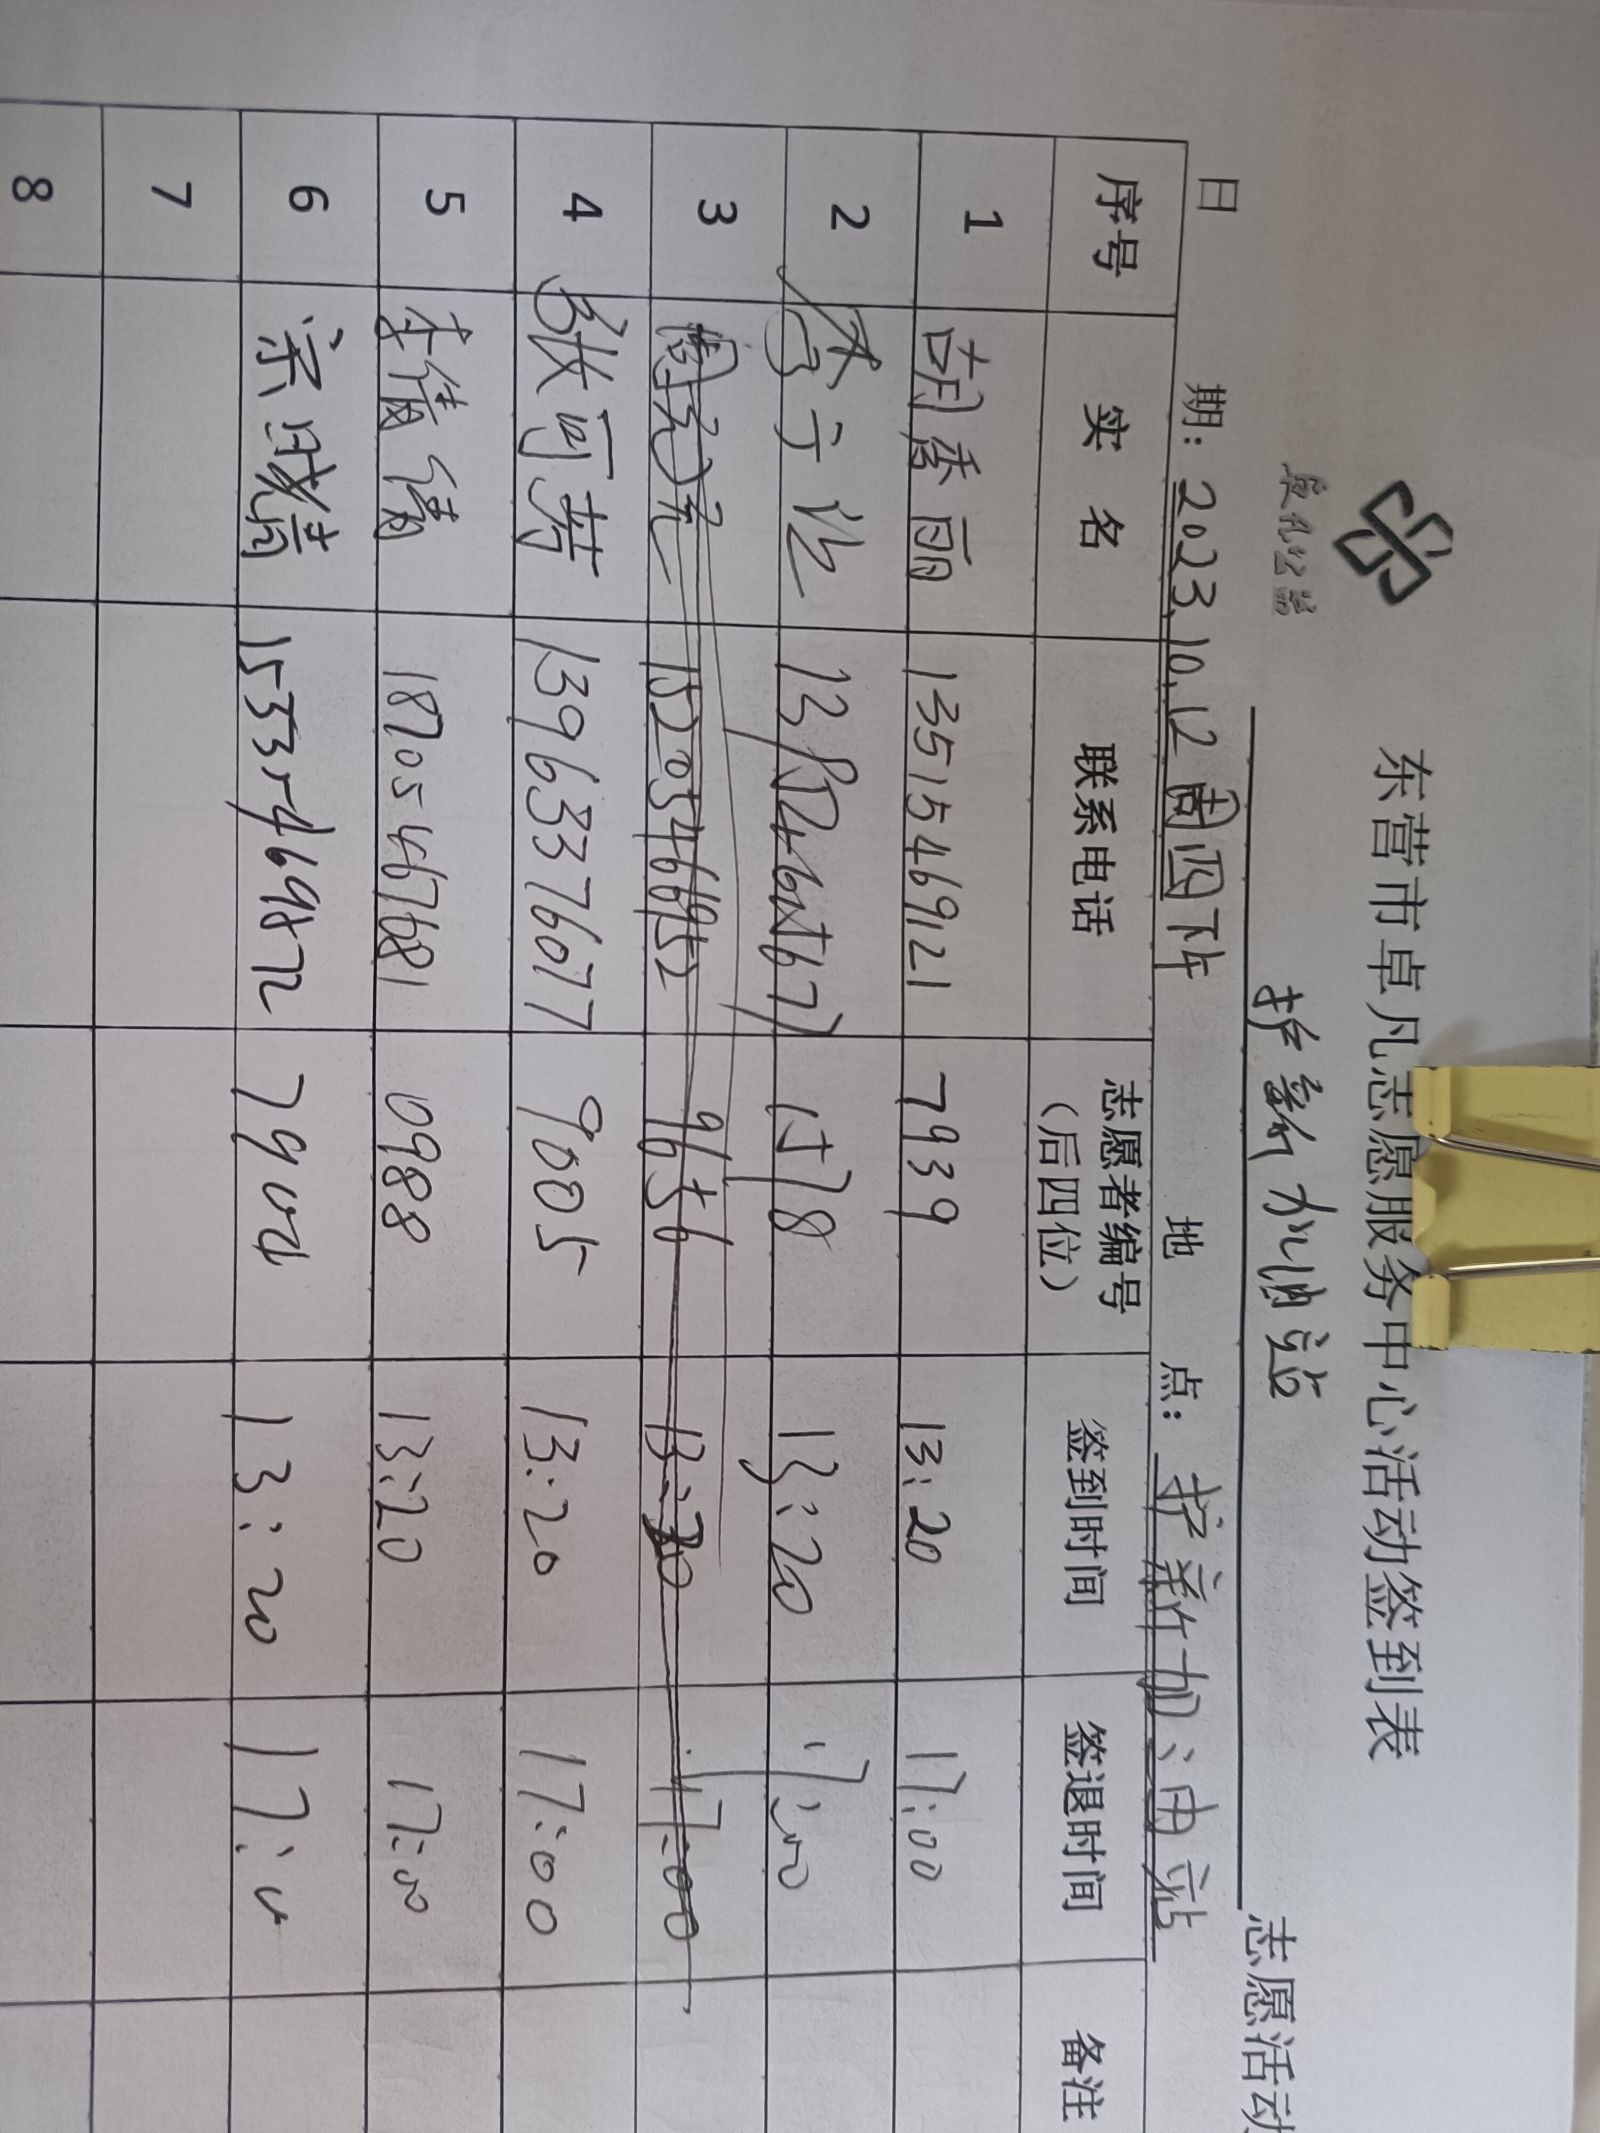 东营市卓凡志愿服务中心活动签到表
卓凡公益
护新加油站 志愿活动
日 期：2023.10.12周四下午 地 点：护新加油站
序号 实 名 联系电话 志愿者编号（后四位） 签到时间 签退时间 备注
1 胡秀丽 13515469121 7939 13:20 17:00
2 13:20 17:00
3 15205466952 9656 17:00
4 张可梦 13963376077 9005 13:20 17:00
5 李倩倩 18705467681 0988 13:20 17:00
6 宗晓倩 7904 13:20 17:00
7
8